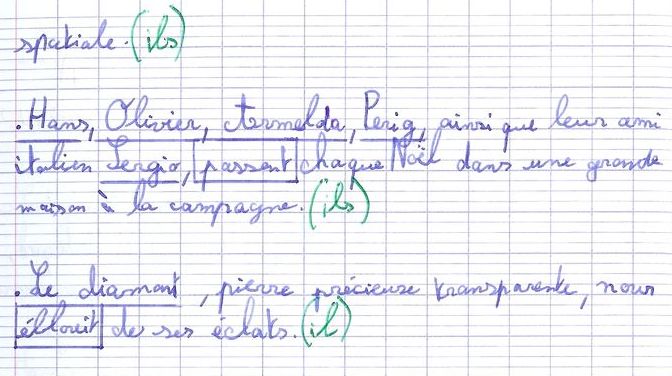 spatiale. (ils)
. Hans, Olivier, Armelda, Perig, ainsi que leur ami
italien Sergio, passent chaque Noël dans une grande
maison à la campagne. (ils)
. Le diamant, pierre précieuse transparente, nous
éblouit de ses éclats. (il)